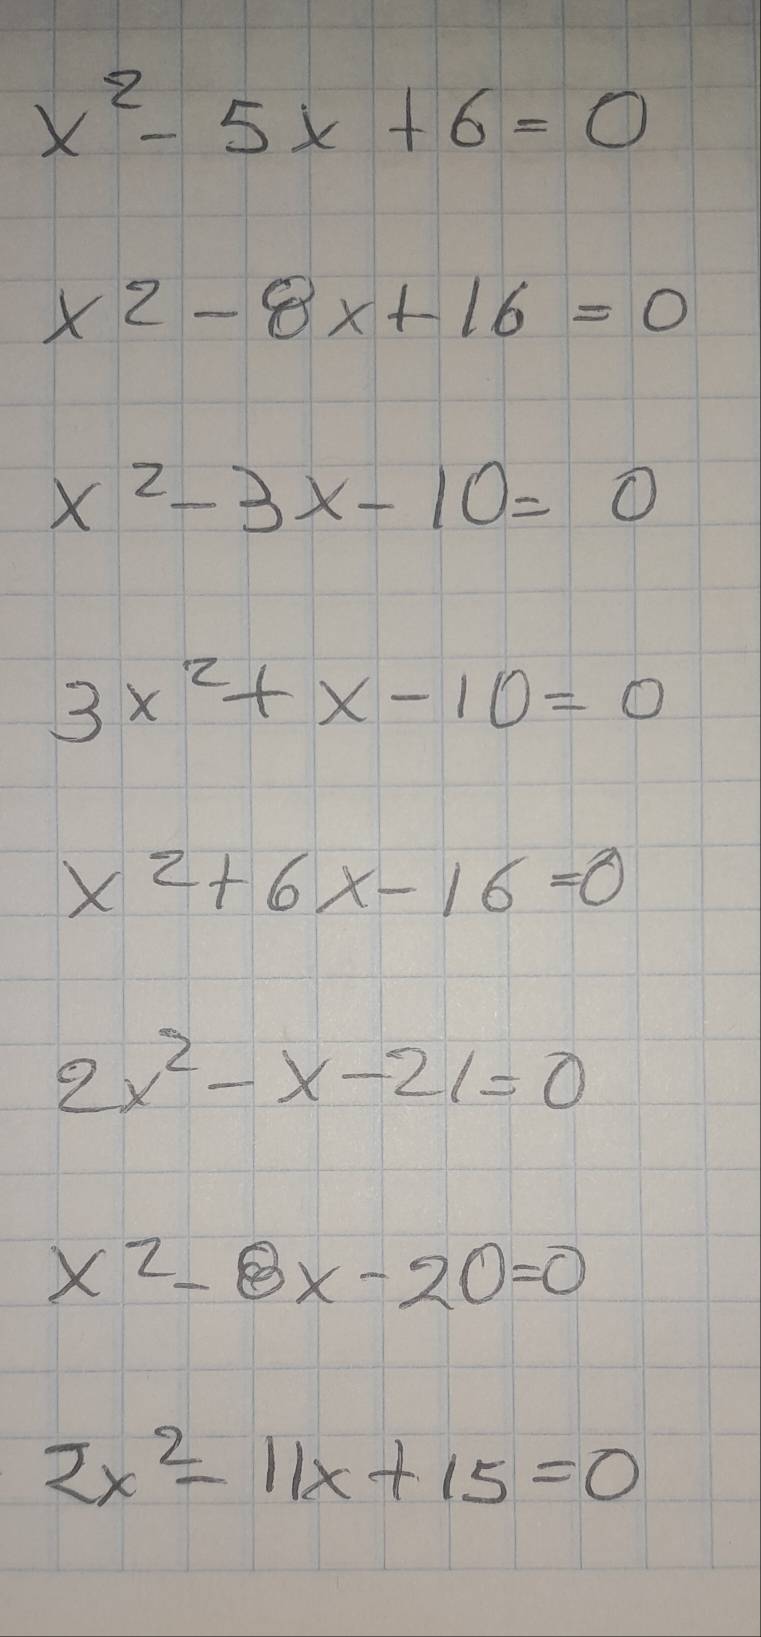 x² - 5x + 6 = 0
x² - 8x + 16 = 0
x² - 3x - 10 = 0
3x² + x - 10 = 0
x² + 6x - 16 = 0
2x² - x - 21 = 0
x² - 8x - 20 = 0
2x² - 11x + 15 = 0